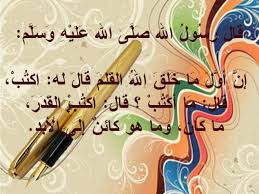 قال رسولُ الله صلَّى الله عَليْه وسلَّم:
إنّ أوّل ما خَلَقَ اللهُ القَلَمُ قالَ له: اكتُبْ،
قال: ما أكتُبْ ؟ قال: اكتُبْ القَدَرَ،
ما كان، وما هو كائن إلى الأبَد.